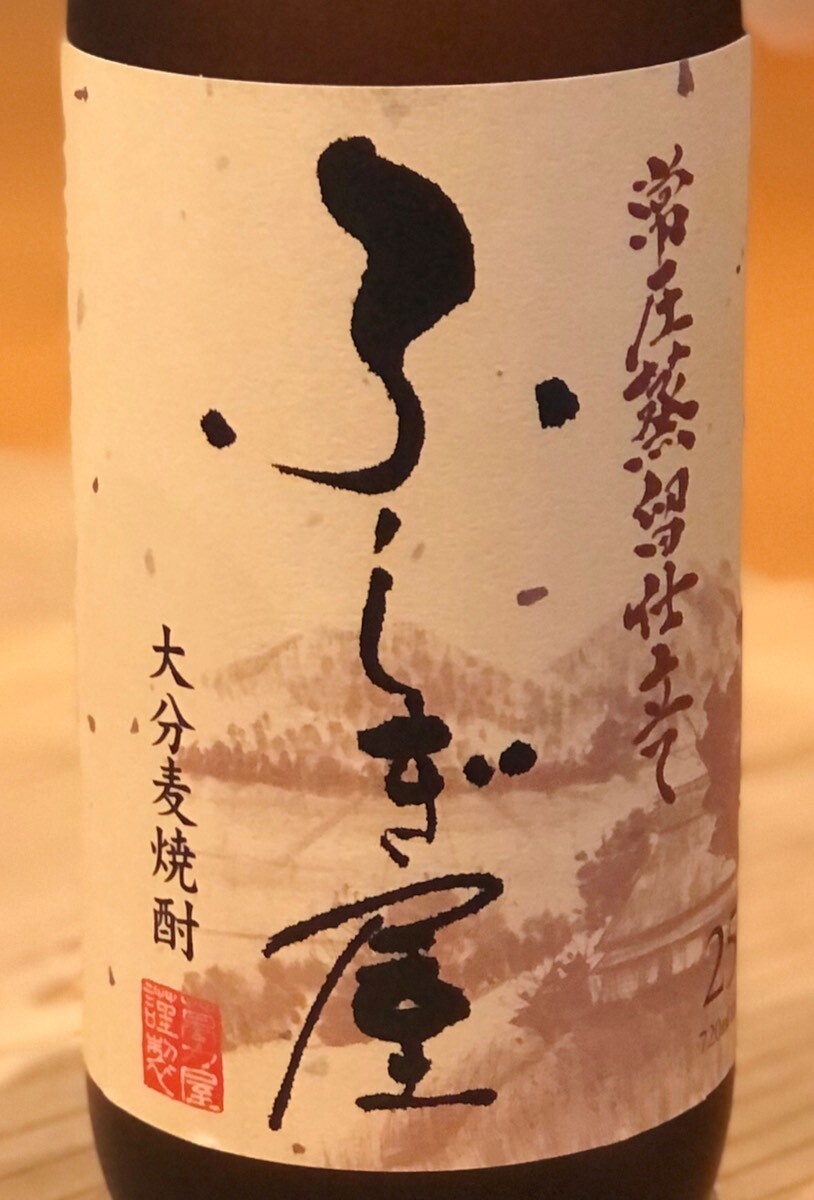 常圧蒸留仕立て
ふしぎ屋
大分麦焼酎
謹製
25
720ml